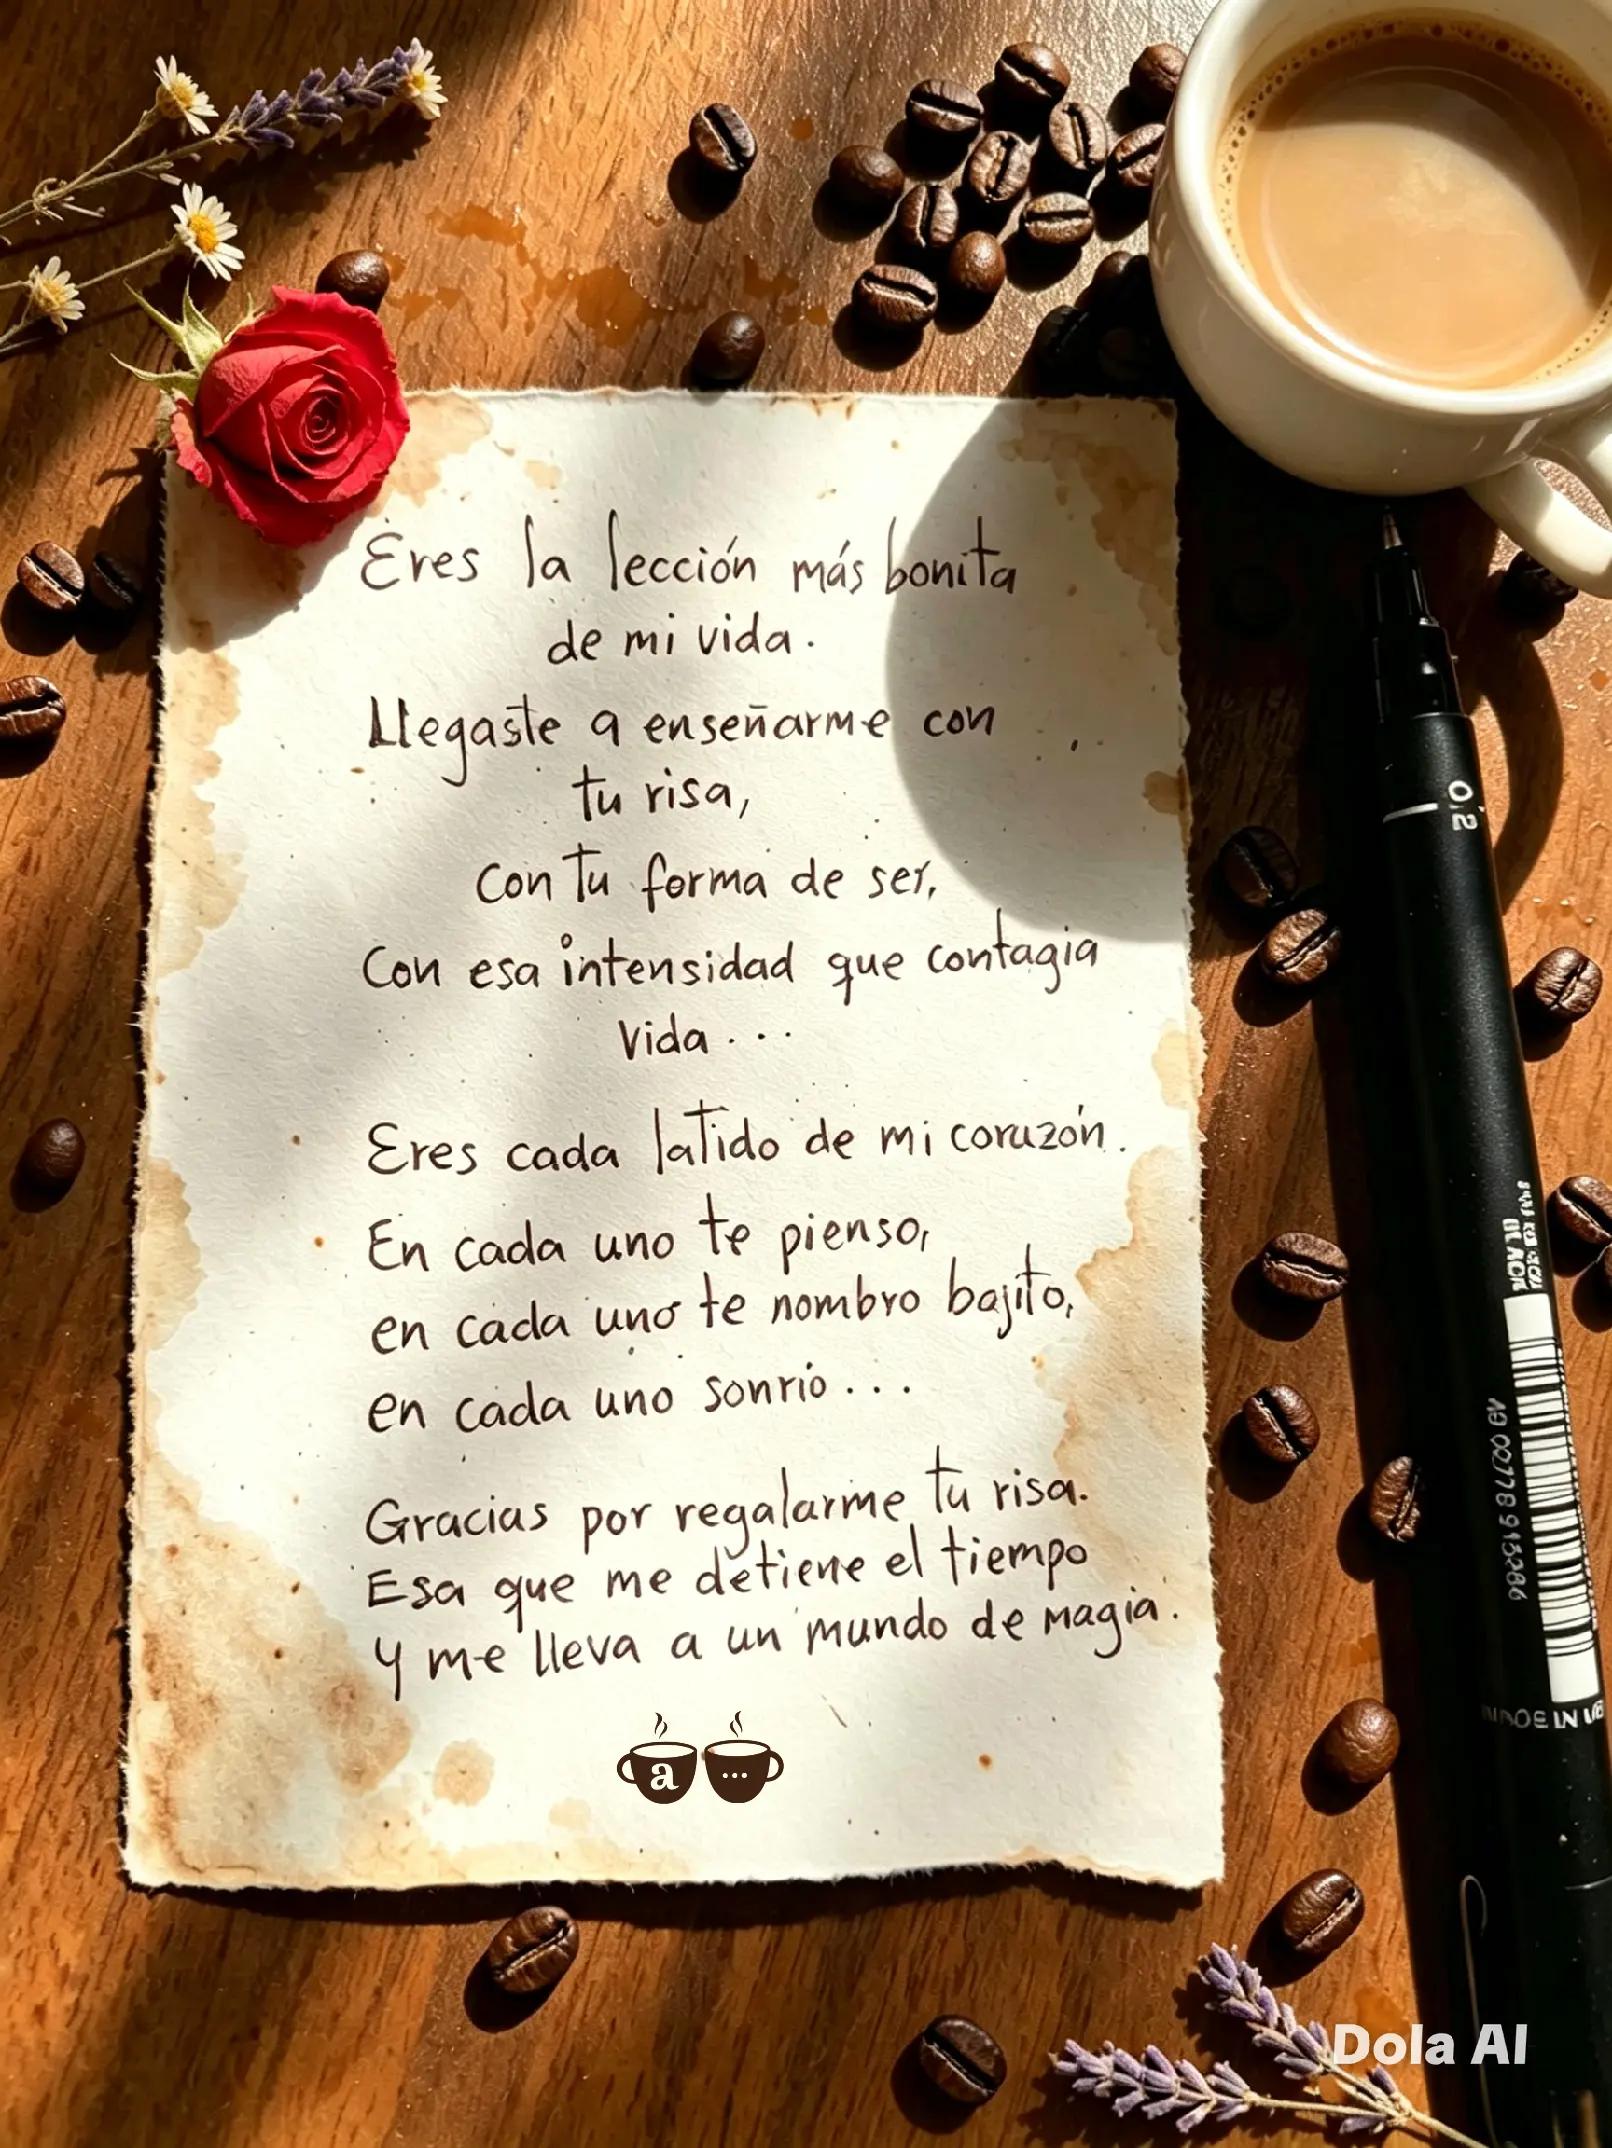 Eres la lección más bonita
de mi vida.
Llegaste a enseñarme con
tu risa,
con tu forma de ser,
Con esa intensidad que contagia
vida...
Eres cada latido de mi corazón.
En cada uno te pienso,
en cada uno te nombro bajito,
en cada uno sonrió...
Gracias por regalarme tu risa.
Esa que me detiene el tiempo
y me lleva a un mundo de magia.
a ...
0,2
BLACK
Dola AI